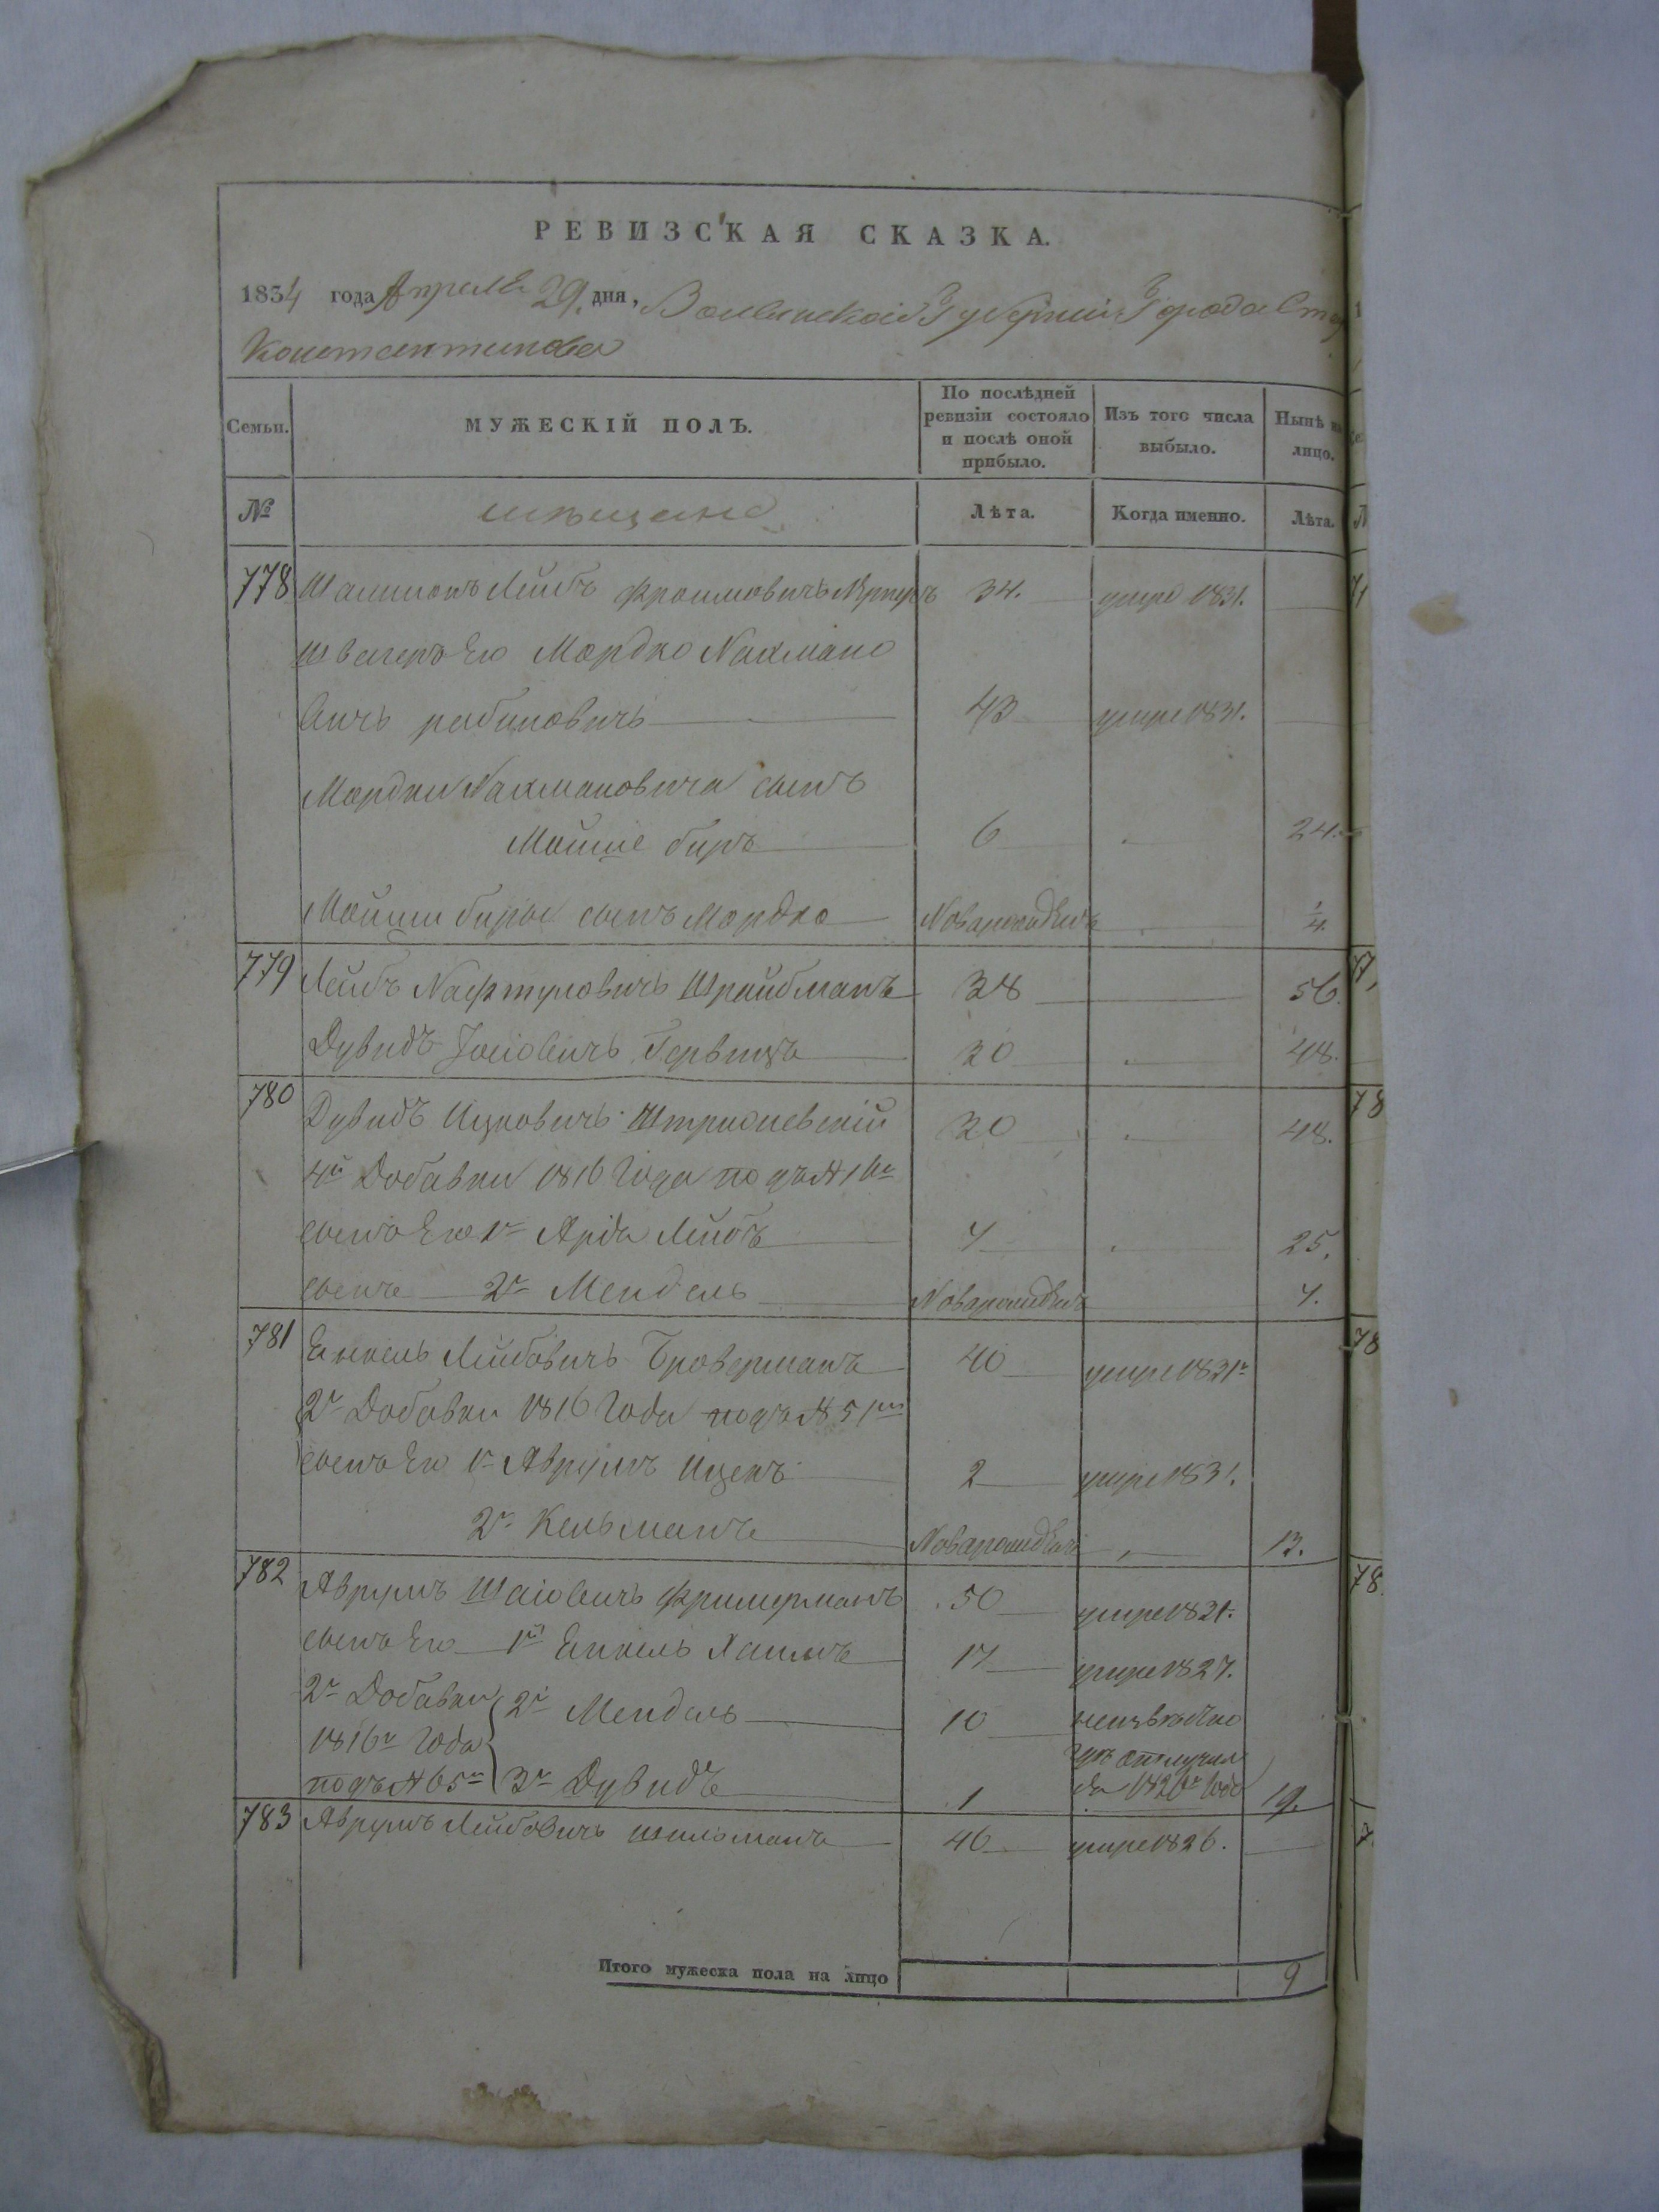 РЕВИЗСКАЯ СКАЗКА.
1834 года Апреля 29. дня, Волынской Губернии Города Старо
Константинова
Семьи. МУЖЕСКІЙ ПОЛЪ. По послѣдней ревизіи состояло и послѣ оной прибыло. Изъ того числа выбыло. Нынѣ на лицо.
№ мѣщане Лѣта. Когда именно. Лѣта.
778 Лейбъ Фроимовичъ 34. умре 1831.
швагеръ Его Мордко Нахмано
вичъ рабиновичъ 43 умре 1831.
Мордки Нахмановича сынъ
Мошие беръ 6 24.
Мошки беры сынъ Мордко Новарожденъ 1/4
779 Лейбъ Нафтуловичъ Шрайбманъ 38 56.
Дувидъ Іосіовичъ Гервицъ 30 48.
780 Дувидъ Ицковичъ 30 48.
4й Добавки 1816 Года подъ № 16м
сынъ Его 1й Лейбъ 7 25.
сынъ 2й Мендель Новарожденъ 7.
781 Енкель Лейбовичъ Броверманъ 40 умре 1831
2й Добавки 1816 Года подъ № 5
сынъ Его 1й Аврумъ Ицекъ 2 умре 1831.
2й Кельманъ Новарожденъ 13.
782 Аврумъ Шаіовичъ Фримерманъ 50 умре 1831.
сынъ Его 1й Енкель Хаимъ 17 умре 1827.
2й Добавки 2й Мендель 10 неизвѣстно
1816й Года гдѣ отлучил
подъ № 65м 3й Дувидъ 1 ся 1820 Года 19.
783 Аврумъ Лейбовичъ шильманъ 46 умре 1826.
Итого мужеска пола на лицо 9